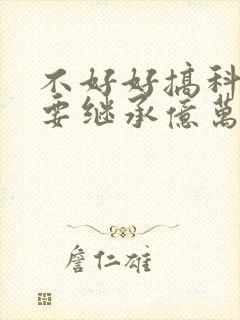 不好好搞科
要继承億萬
詹仁雄